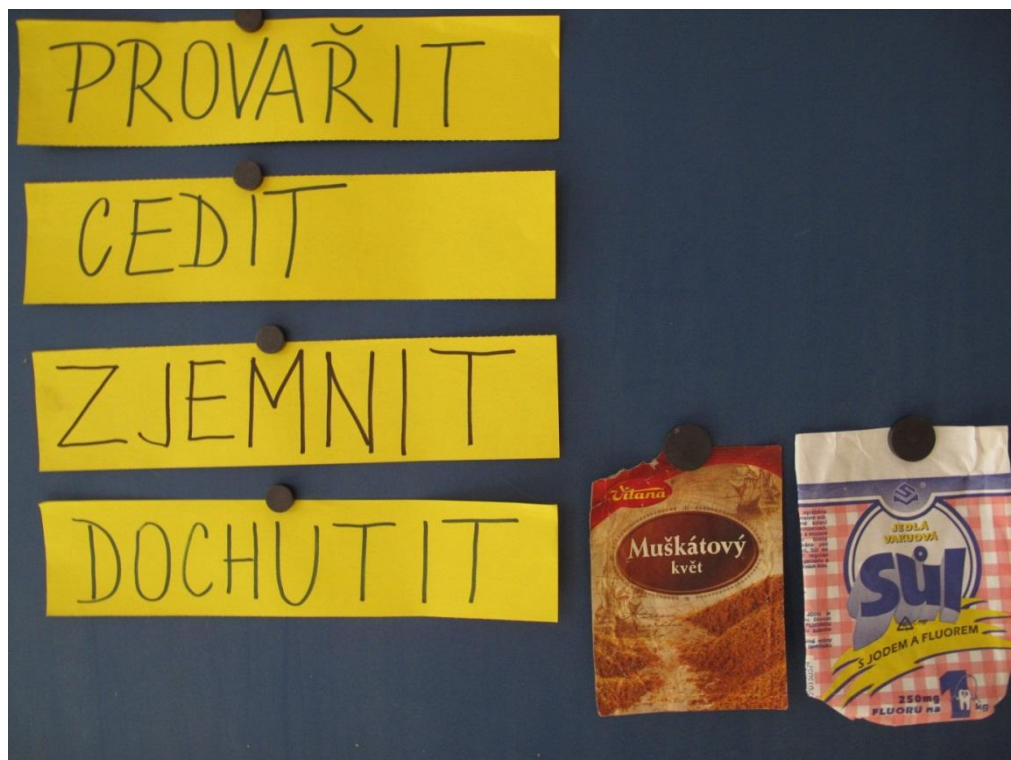 PROVAŘIT
CEDIT
ZJEMNIT
DOCHUTIT
Vitana
Muškátový
květ
JEDLÁ
VAKUOVÁ
SŮL
S JODEM A FLUOREM
250mg
FLUORU na 1 kg